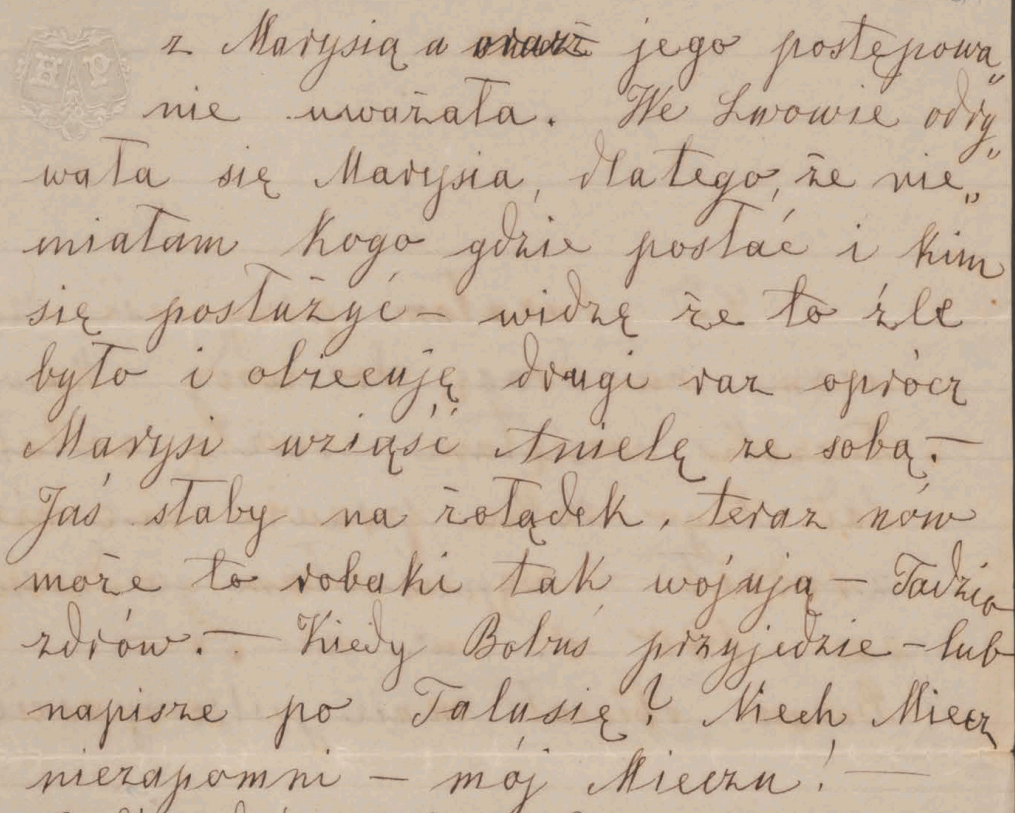 z Marysią a jego postępowa„
nie uważała. We Lwowie odry„
wała się Marysia, dlatego, że nie„
miałam kogo gdzie posłać i kim
się posłużyć – widzę że to źle
było i obiecuję drugi raz oprócz
Marysi wziąść Anielę ze sobą. –
Jaś słaby na żołądek, teraz nów
może to robaki tak wojują – Tadzio
zdrów. – Kiedy Bobuś przyjedzie – lub
napisze po Talusię? Niech Miecz
niezapomni – mój Mieczu! –